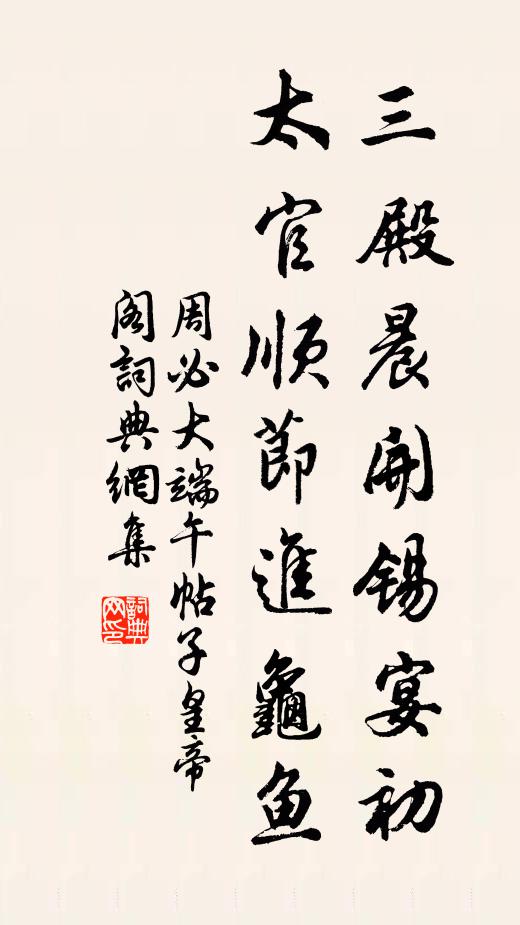 三殿晨開錫宴初
太官順節進龜魚
周必大端午帖子皇帝
閣詞典網集
詞典
网印